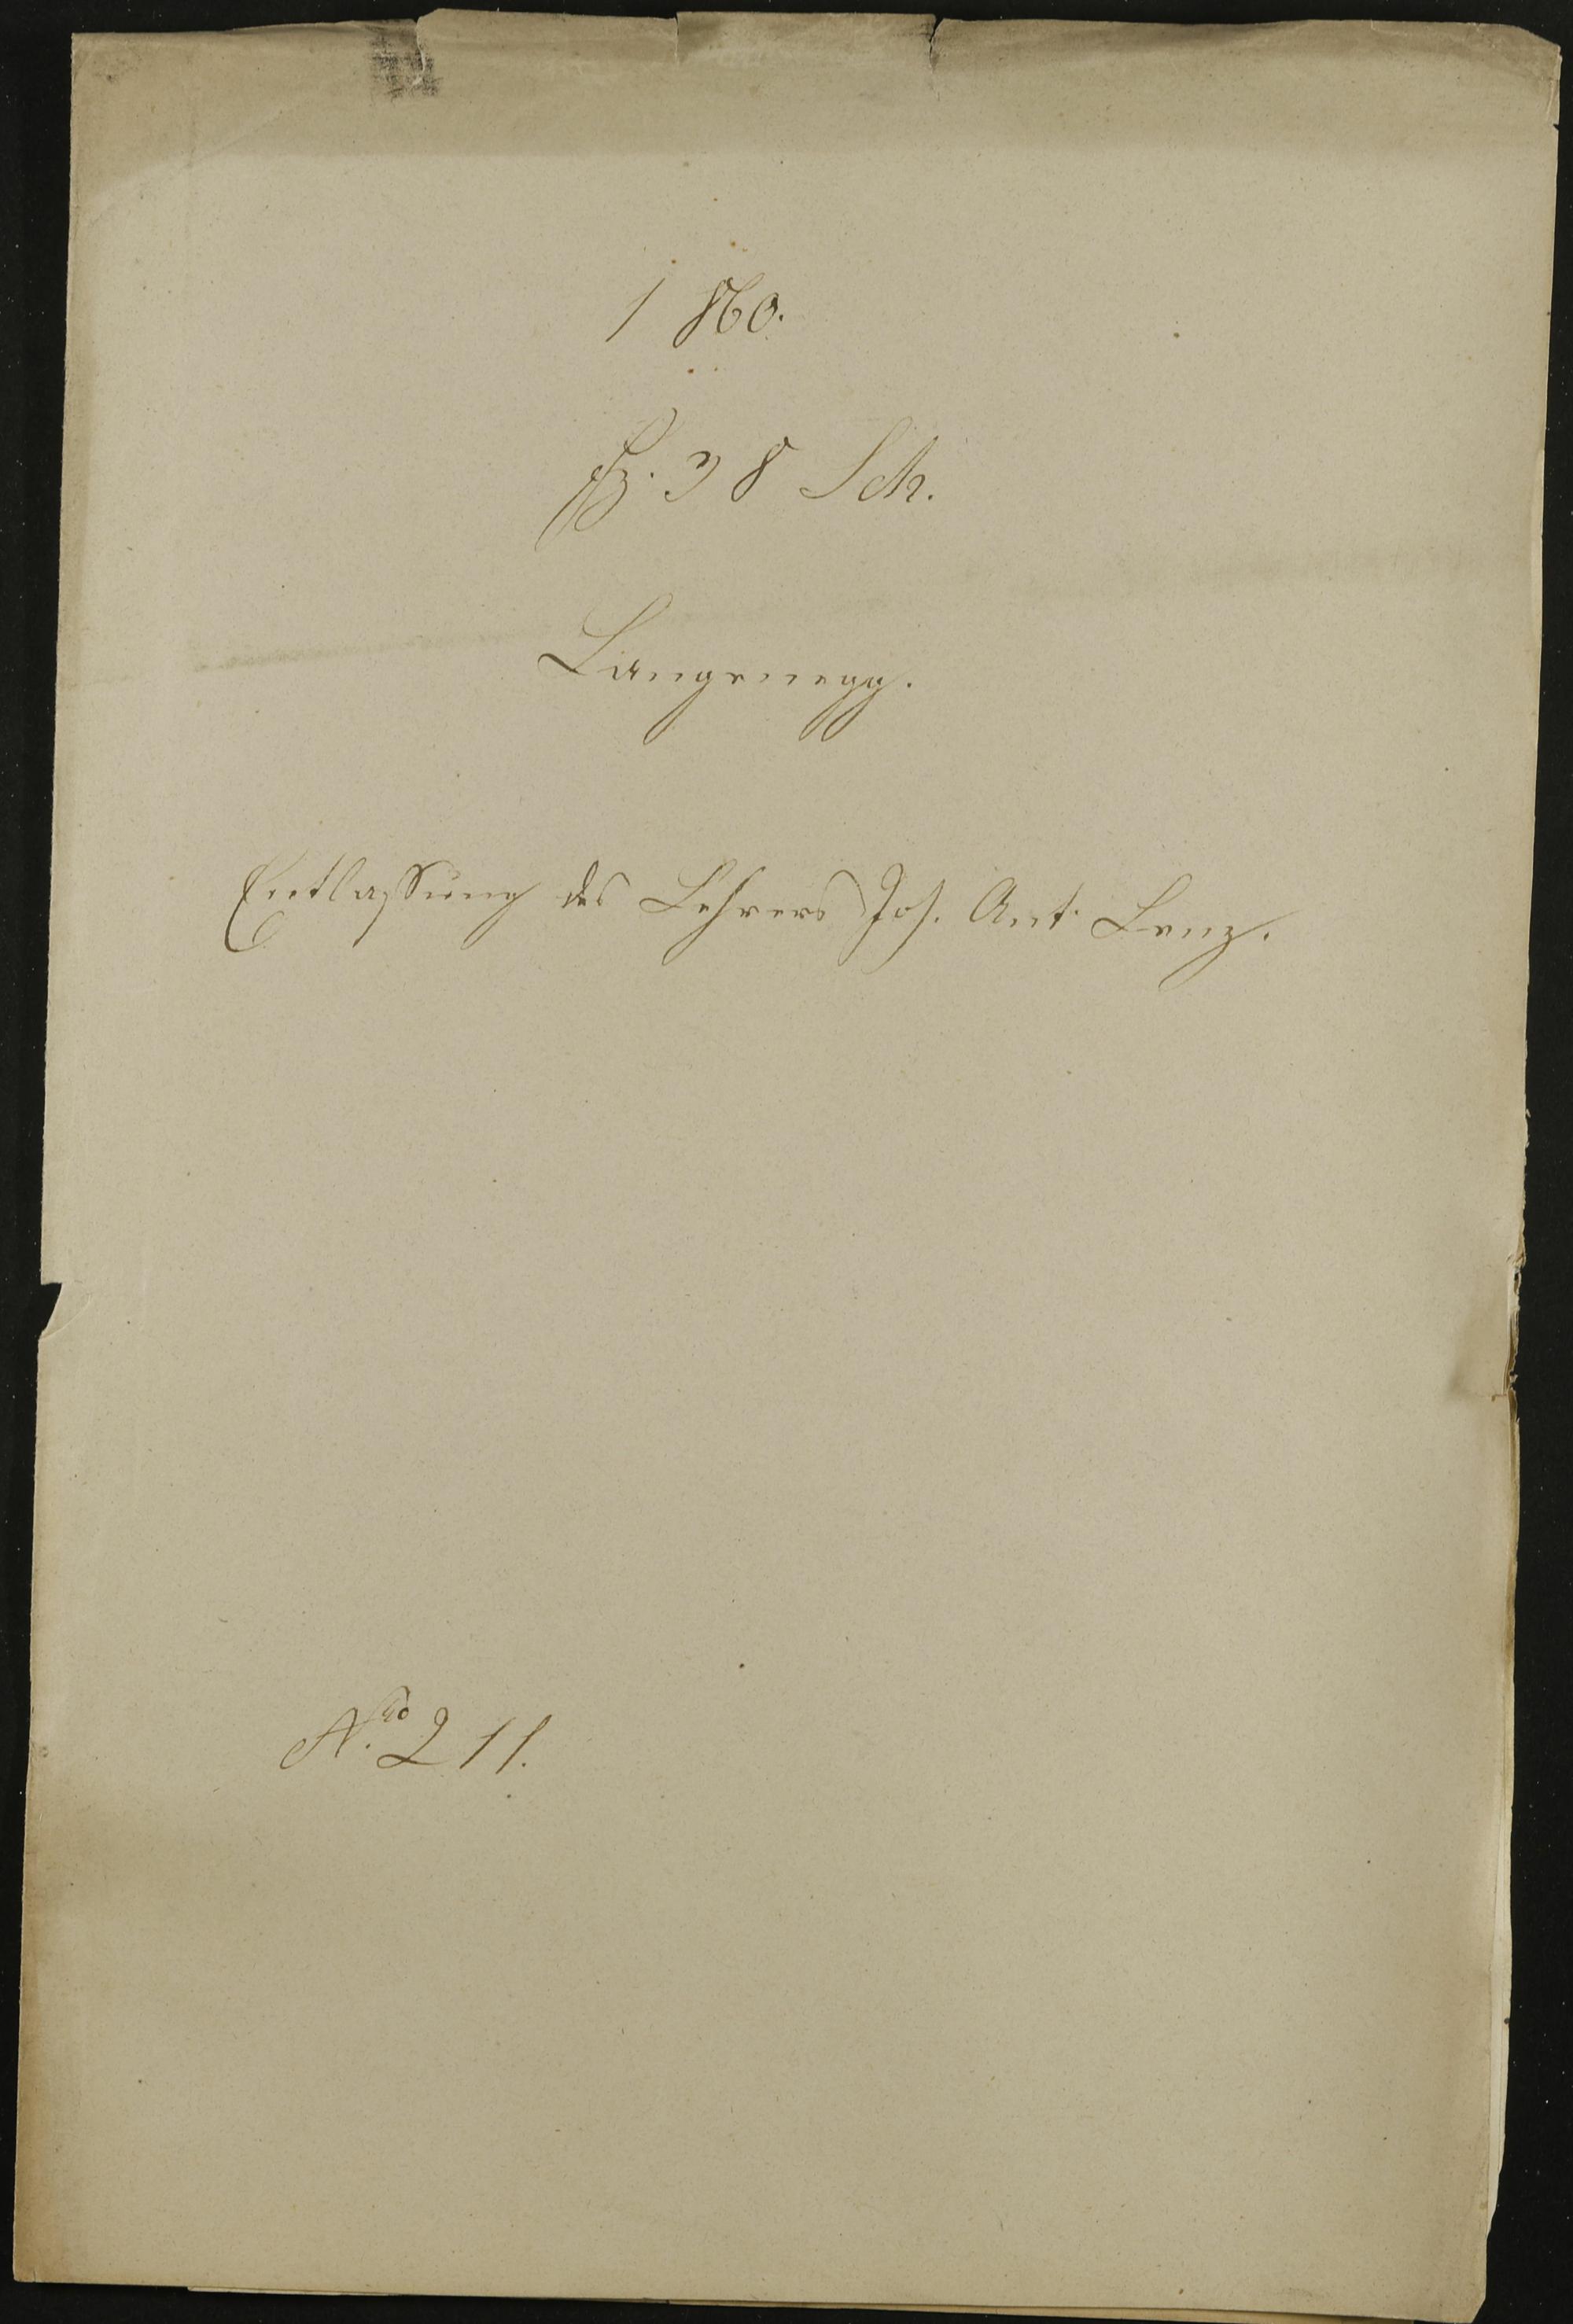 1860.
Fz. 38 Sch.
Langenegg.
Entlassung des Lehrers Jos. Ant. Lenz.
Nro 211.